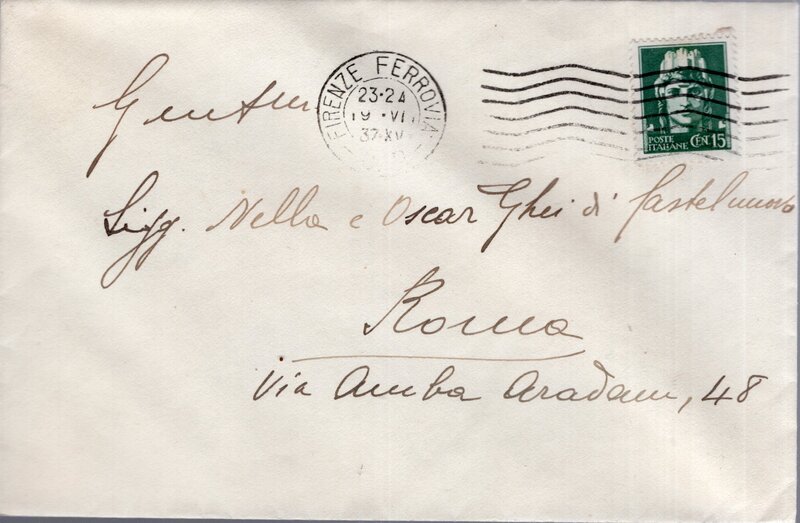 FIRENZE FERROVIA
23·24
19·VI
37·XV
POSTE
ITALIANE CENT. 15
Sigg. Nella e Oscar Ghei di Castelnuovo
Roma
Via Amba Aradam, 48